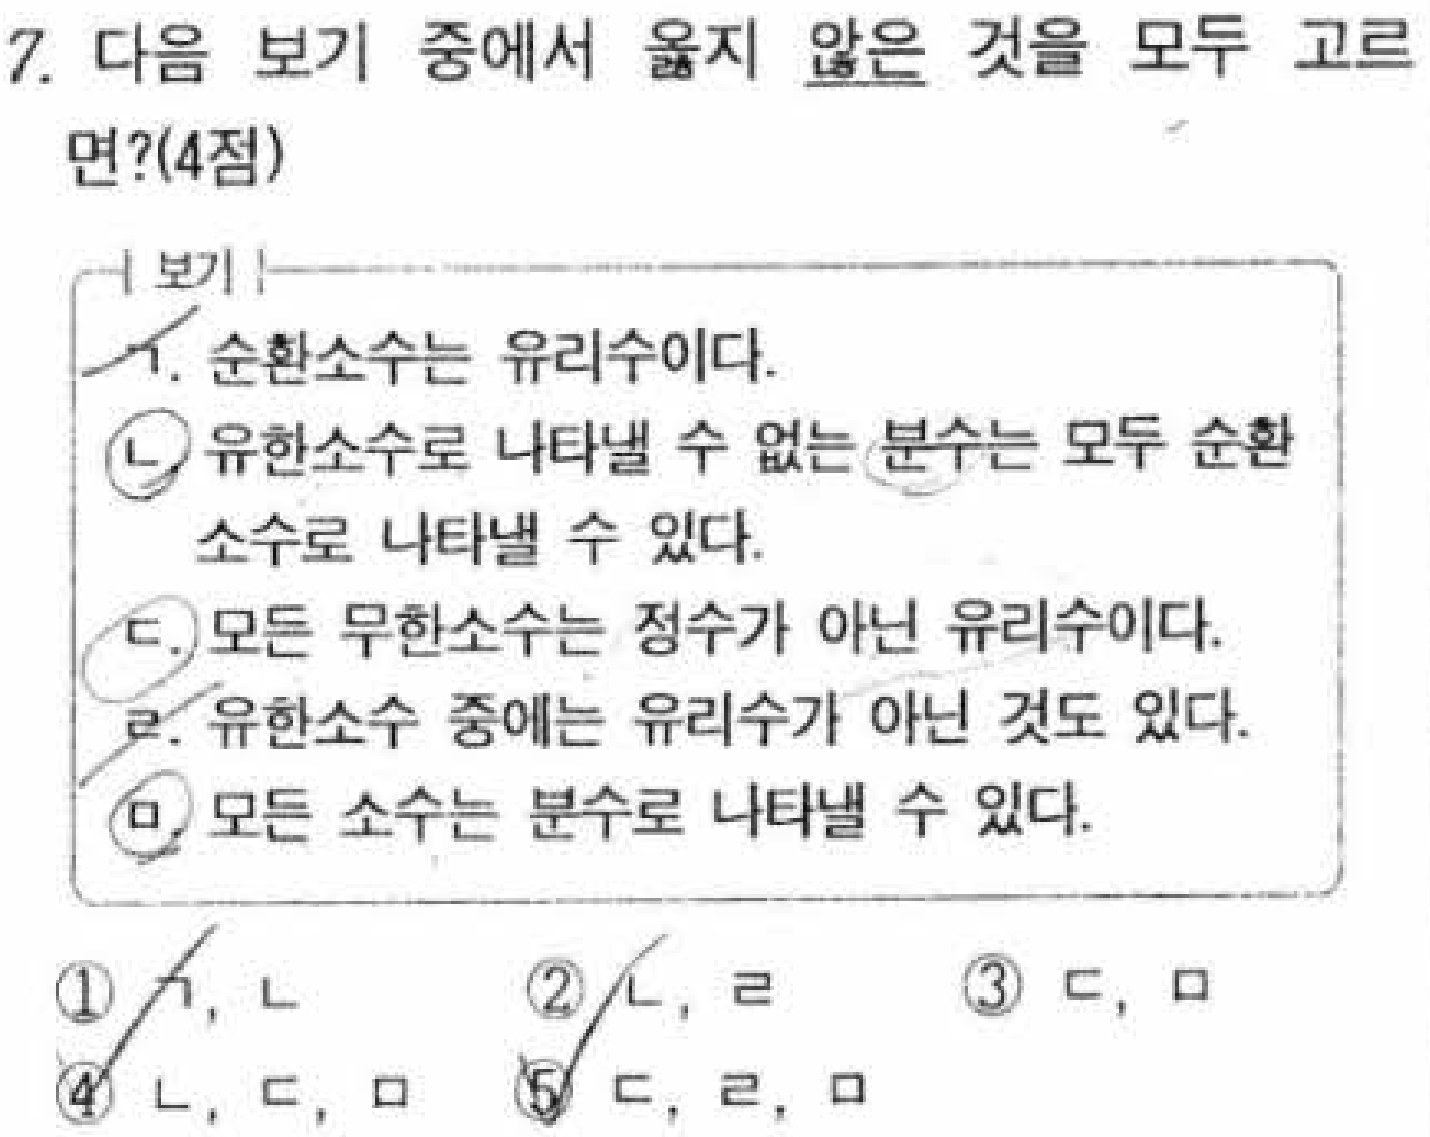 7. 다음 보기 중에서 옳지 않은 것을 모두 고르
면?(4점)
보기
ㄱ. 순환소수는 유리수이다.
ㄴ. 유한소수로 나타낼 수 없는 분수는 모두 순환
소수로 나타낼 수 있다.
ㄷ. 모든 무한소수는 정수가 아닌 유리수이다.
ㄹ. 유한소수 중에는 유리수가 아닌 것도 있다.
ㅁ. 모든 소수는 분수로 나타낼 수 있다.
① ㄱ, ㄴ ② ㄴ, ㄹ ③ ㄷ, ㅁ
④ ㄴ, ㄷ, ㅁ ⑤ ㄷ, ㄹ, ㅁ